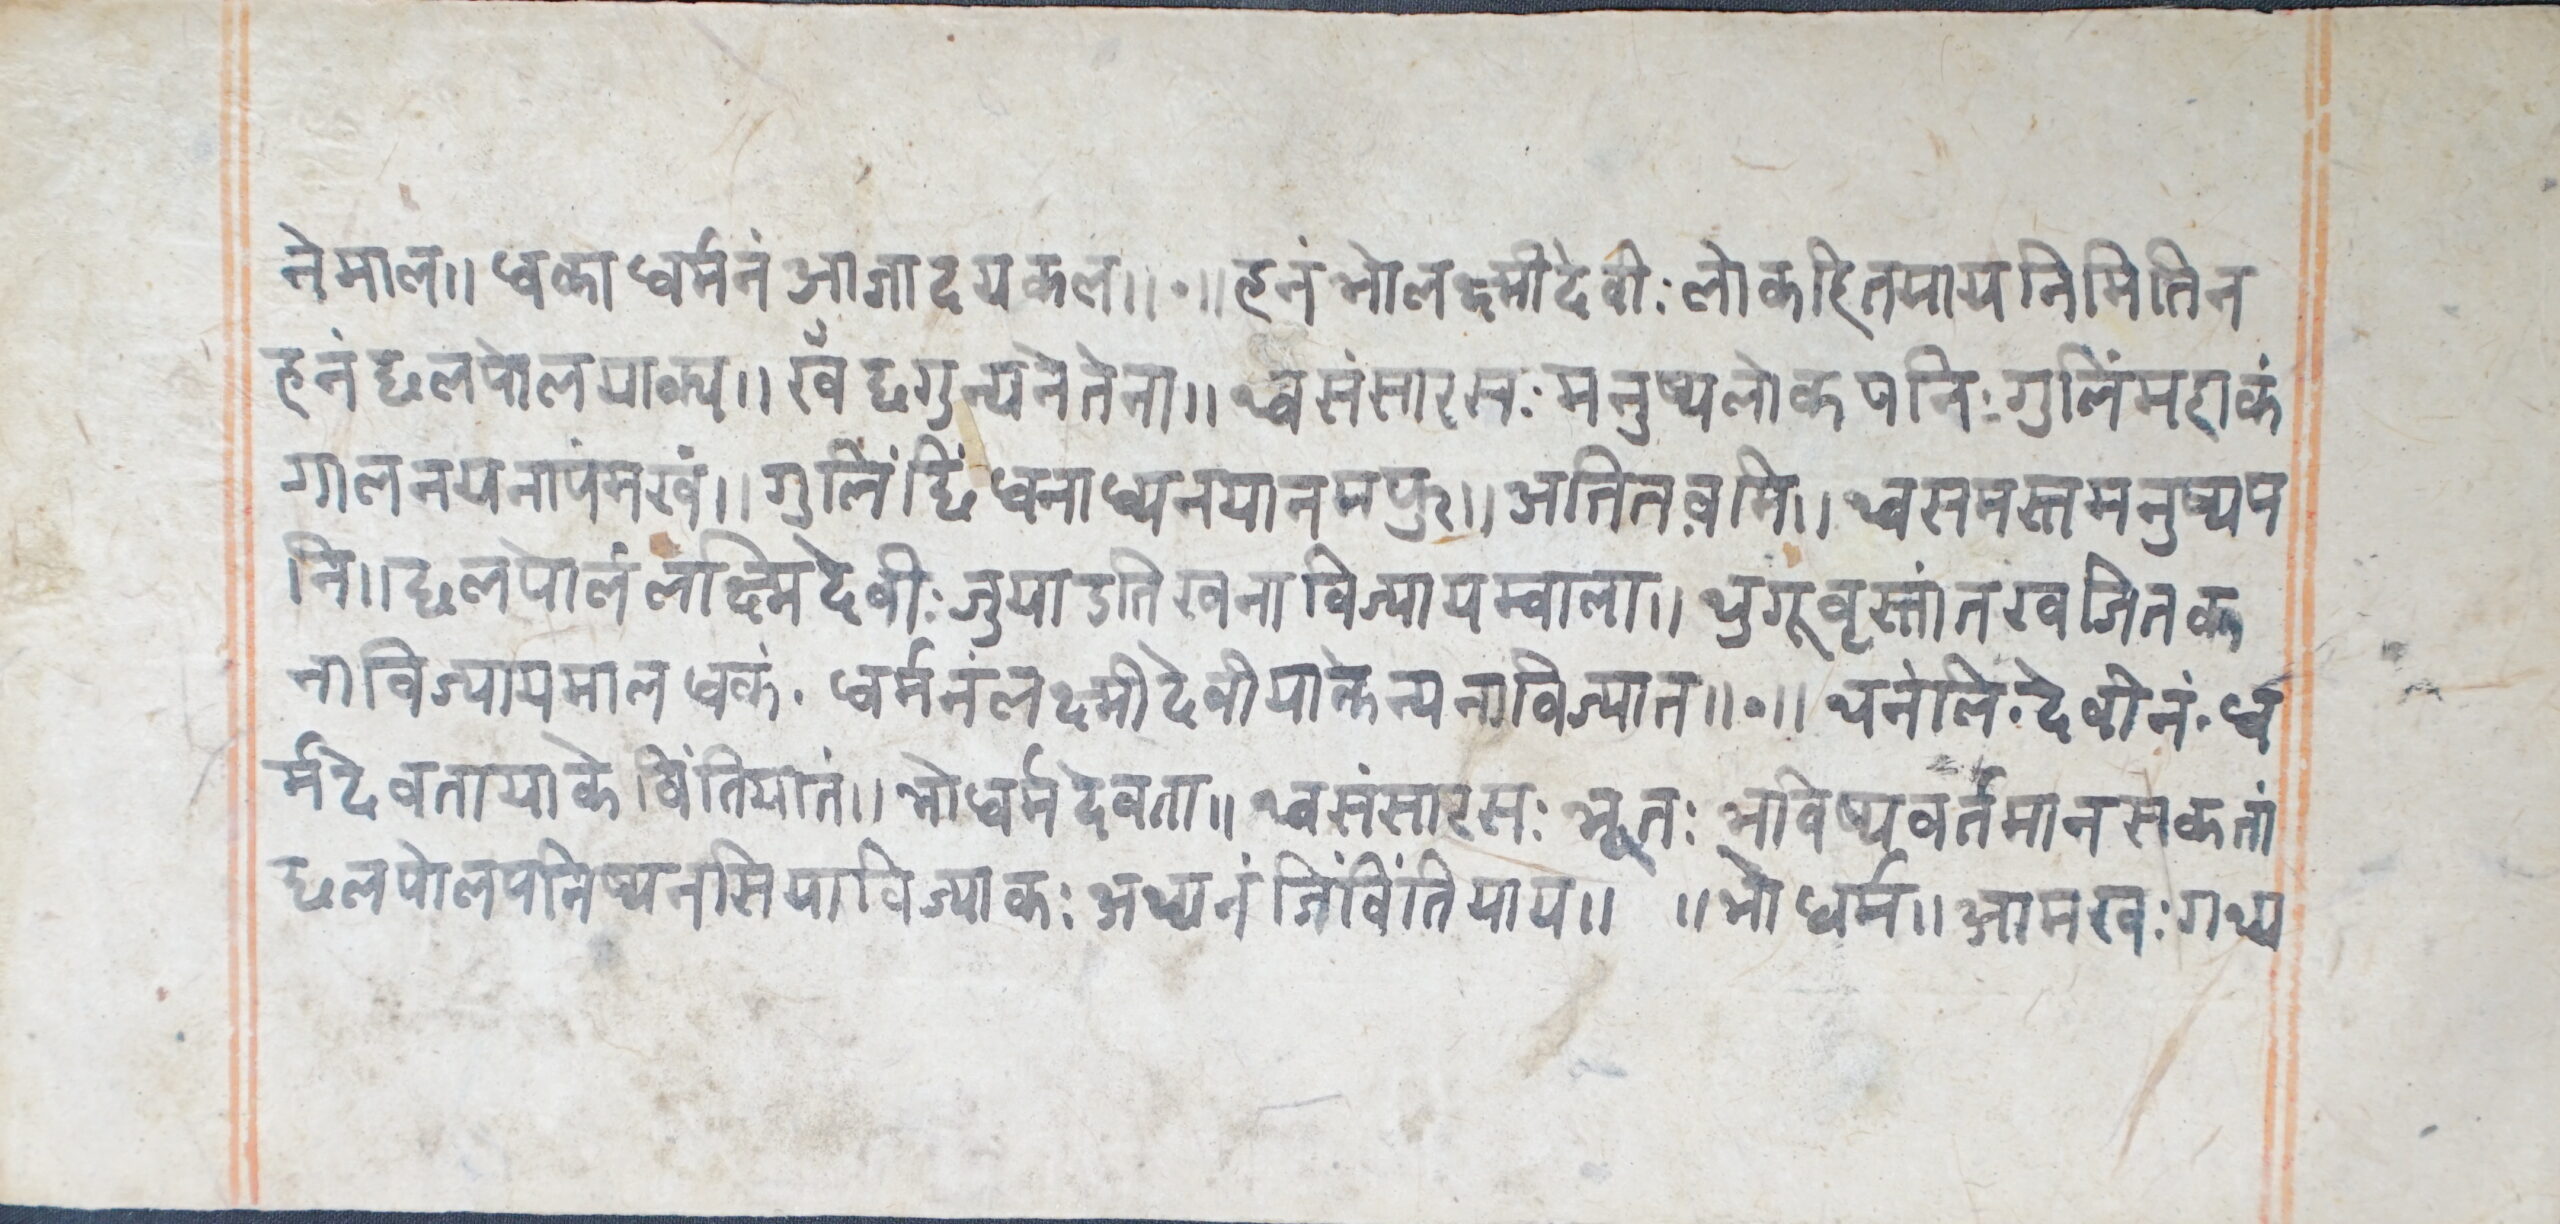 नेमाल॥ धका धर्मनं आज्ञादयकल॥०॥ हनं भोलक्ष्मीदेवीः लोकहितयाय निमितिन
हनं छलपोलयाक्य॥ खँ छगुन्यनेतेना॥ थ्वसंसारसः मनुष्यलोकपनिः गुलिं मछाकं
गालनयनापंमखं॥ गुलिं छिं धनाध्यनयानमफु॥ अतितवमि॥ थ्वसमस्तमनुष्यप
नि॥ छलपोलं लक्ष्मिदेवीः जुयाऽतिखनाविज्यायम्वाला॥ थुगूवृस्तांतखजितक
नाविज्यायमाल धकं॰ धर्मनंलक्ष्मीदेवीयाकेन्यनाविज्यात॥०॥ थनंलि॰देवीनं॰ध
र्मदेवतायाके विंतियातं॥ भोधर्मदेवता॥ थ्वसंसारसः भूतः भविष्यवर्तमानसकतां
छलपोलपनिष्यनसियाविज्याकः अथ्यनं जिंविंतियाय॥ ॥भोधर्म॥ आमखः गथ्य